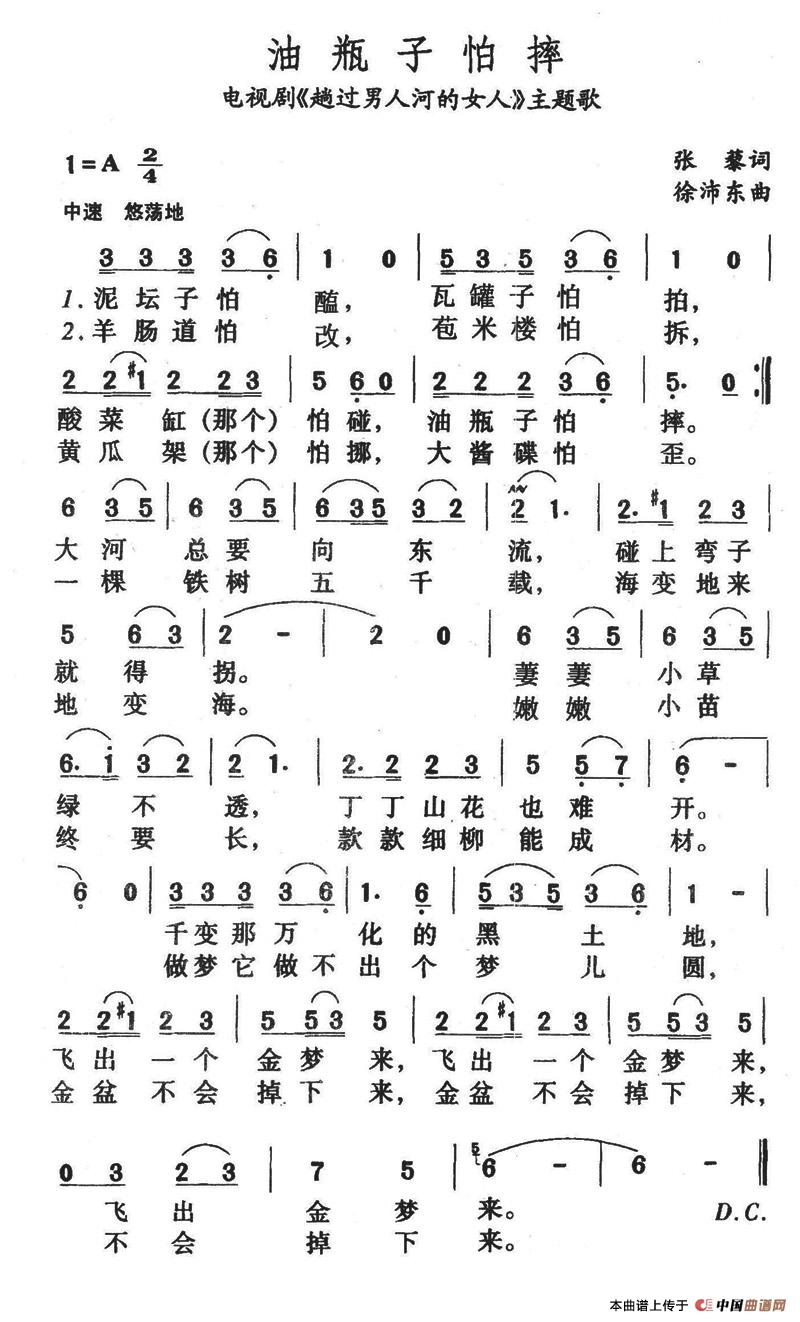 油瓶子怕摔
电视剧《趟过男人河的女人》主题歌
1=A 2/4
张藜词
徐沛东曲
中速 悠荡地
3 3 3 3 6 | 1 0 | 5 3 5 3 6 | 1 0
1.泥坛子怕 醢, 瓦罐子怕 拍,
2.羊肠道怕 改, 苞米楼怕 拆,
2 2 #1 2 2 3 | 5 6 0 | 2 2 2 3 6 | 5. 0 :‖
酸菜 缸(那个)怕碰, 油瓶子怕 摔。
黄瓜 架(那个)怕挪, 大酱碟怕 歪。
6 3 5 | 6 3 5 | 6 3 5 3 2 | 2 1. | 2. #1 2 3
大河 总要 向 东 流, 碰上弯子
一棵 铁树 五 千 载, 海变地来
5 6 3 | 2 - | 2 0 | 6 3 5 | 6 3 5
就得 拐。 萋萋 小草
地变 海。 嫩嫩 小苗
6. 1 3 2 | 2 1. | 2. 2 2 3 | 5 5 7 | 6 -
绿不 透, 丁丁山花 也难 开。
终要 长, 款款细柳 能成 材。
6 0 | 3 3 3 3 6 | 1. 6 | 5 3 5 3 6 | 1 -
千变那万 化的 黑 土 地,
做梦它做 不出 个梦 儿 圆,
2 2 #1 2 3 | 5 5 3 5 | 2 2 #1 2 3 | 5 5 3 5
飞出一个 金梦来, 飞出一个 金梦来,
金盆不会 掉下来, 金盆不会 掉下来,
0 3 2 3 | 7 5 | 5 6 - | 6 - ‖
飞出 金梦 来。 D.C.
不会 掉下 来。
本曲谱上传于 中国曲谱网